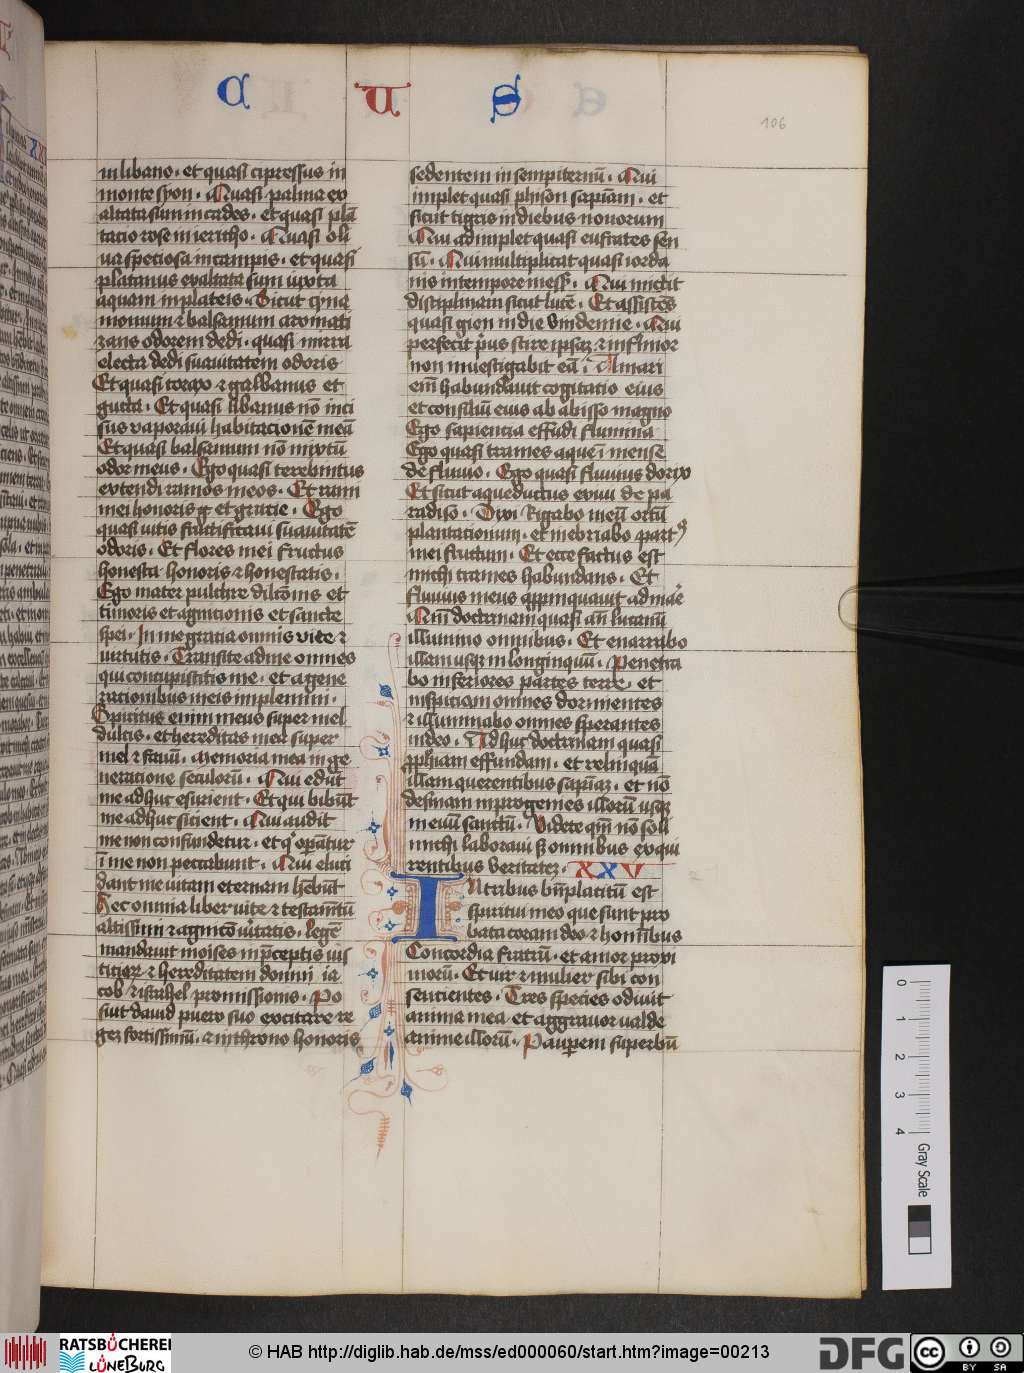 C U S
106
in libano · et quasi cipressus in
monte syon · Quasi palma ex
altata sum in cades · et quasi plā
tacio rose in iericho · Quasi oli
va speciosa in campis · et quasi
platanus exaltata sum iuxta
aquam in plateis · Sicut cyna
momum ⁊ balsamum aromati
zans odorem dedi · quasi mirra
electa dedi suavitatem odoris
Et quasi storax ⁊ galbanus et
gutta · Et quasi libanus nō inci
sus vaporavi habitacionē meā
Et quasi balsamum nō mixtū
odor meus · Ego quasi terebintus
extendi ramos meos · Et rami
mei honoris et gracie · Ego
quasi vitis fructificavi suavitatē
odoris · Et flores mei fructus
honesta honoris ⁊ honestatis ·
Ego mater pulchre dilcōnis et
timoris et agnicionis et sancte
spei · In me gracia omnis vite ⁊
virtutis · Transite ad me omnes
qui concupiscitis me · et a gene
racionibus meis implemini ·
Spiritus enim meus super mel
dulcis · et hereditas mea super
mel ⁊ favū · Memoria mea in ge
neracione seculorū · Qui edūt
me adhuc esurient · Et qui bibūt
me adhuc sicient · Qui audit
me non confundetur · et q operātur
ī me non peccabunt · Qui eluci
dant me vitam eternam hēbūt
Hec omnia liber vite ⁊ testamētū
altissimi ⁊ agnicō vitatis · legē
mandavit moises in pceptis ius
ticiaꝝ ⁊ hereditatem domui ia
cob ⁊ israhel promissionis · Po
suit david puero suo excitare re
gez fortissimū · ⁊ in throno honoris
sedentem in sempiternū · Qui
implet quasi phison sapiam · et
sicut tigris in diebus novorum
Qui adimplet quasi eufrates sen
sū · Qui multiplicat quasi iorda
nis in tempore mess · Qui mittit
disciplinam sicut lucē · Et assistēs
quasi gion in die vindemie · Qui
perfecit pus scire ipsaz ⁊ infirmior
non investigabit eā · A mari
enī habundavit cogitatio eius
et consiliū eius ab abisso magno
Ego sapiencia effudi flumina
Ego quasi trames aque ī mense
de fluvio · Ego quasi fluvius dorix
Et sicut aqueductus exivi de pa
radiso · Dixi Rigabo meū ortū
plantacionum · et inebriabo part
mei fructum · Et ecce factus est
michi trames habundans · Et
fluvius meus appinquavit ad mare
Qm̄ doctrinam quasi an lucanū
illumino omnibus · Et enarrabo
illam usqz in longinquū · Penetra
bo inferiores partes terre · et
inspiciam omnes dormientes
⁊ illuminabo omnes sperantes
in deo · Adhuc doctrinam quasi
pphiam effundam · et relinqua
illam querentibus sapiaz · et nō
desinam in progenies illorū usqz
in evū sanctū · Videte qm̄ nō soli
michi laboravi s omnibus exqui
rentibus veritatez · XXV
In tribus bnplacitū est
spiritui meo que sunt pro
bata coram deo ⁊ hominibus
Concordia fratrū · et amor proxi
morū · Et vir ⁊ mulier sibi con
sencientes · Tres species odivit
anima mea · et aggravor valde
anime illorū · Pauperem superbū
0 1 2 3 4
Gray Scale
RATSBÜCHEREI
LÜNEBURG
© HAB http://diglib.hab.de/mss/ed000060/start.htm?image=00213
DFG
cc BY SA